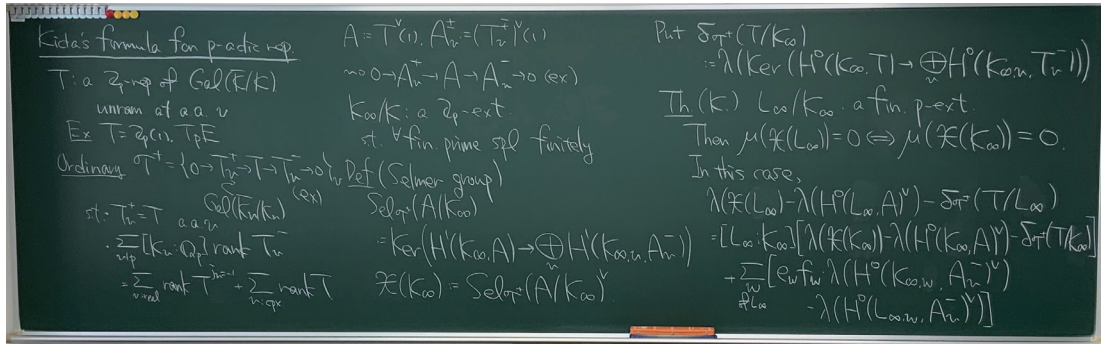 Kida's formula for p-adic rep.
T: a Zp-rep of Gal(K̄/K)
unram at a.a. v
Ex T=Zp(1), TpE
Ordinary 𝒯⁺={0→Tᵥ⁺→T→Tᵥ⁻→0}ᵥ (ex)
Gal(K̄ᵥ/Kᵥ)
s.t. · Tᵥ⁺=T a.a. v
· Σ_{v|p} [Kᵥ:Qp] rank Tᵥ⁻
= Σ_{v:real} rank T^{Jv=-1} + Σ_{v:cpx} rank T
A=T^∨(1), Aᵥ^±=(Tᵥ^∓)^∨(1)
⇝ 0→Aᵥ⁺→A→Aᵥ⁻→0 (ex)
K∞/K: a Zp-ext
s.t. ∀fin. prime spl finitely
Def (Selmer group)
Sel_{𝒯⁺}(A/K∞)
=Ker(H¹(K∞,A)→⊕ᵥ H¹(K∞,ᵥ, Aᵥ⁻))
𝔛(K∞):=Sel_{𝒯⁺}(A/K∞)^∨
Put δ_{𝒯⁺}(T/K∞)
:=λ(Ker(H⁰(K∞,T)→⊕ᵥ H⁰(K∞,ᵥ, Tᵥ⁻)))
Th (K.) L∞/K∞: a fin. p-ext.
Then μ(𝔛(L∞))=0⇔μ(𝔛(K∞))=0.
In this case,
λ(𝔛(L∞))-λ(H⁰(L∞,A)^∨)-δ_{𝒯⁺}(T/L∞)
=[L∞:K∞][λ(𝔛(K∞))-λ(H⁰(K∞,A)^∨)-δ_{𝒯⁺}(T/K∞)]
+ Σ_{w of L∞} [e_w f_w·λ(H⁰(K∞,w, Aᵥ⁻)^∨)
-λ(H⁰(L∞,w, Aᵥ⁻)^∨)]